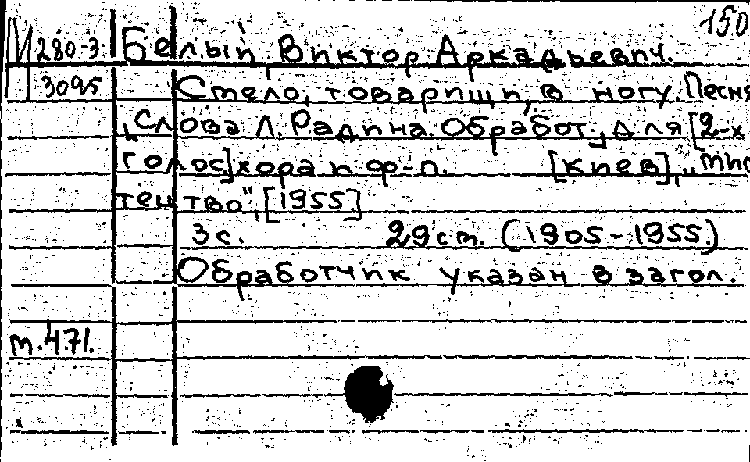 150
М 280-3 Белый, Виктор Аркадьевич.
3095 Смело, товарищи, в ногу. Песня
Слова Л. Радина. Обработ. для [2-х
голос] хора и ф-п. [Киев], "Мис
тецтво", [1955]
3 с. 29 см. (1905-1955.)
Обработчик указан в загол.
т.471.